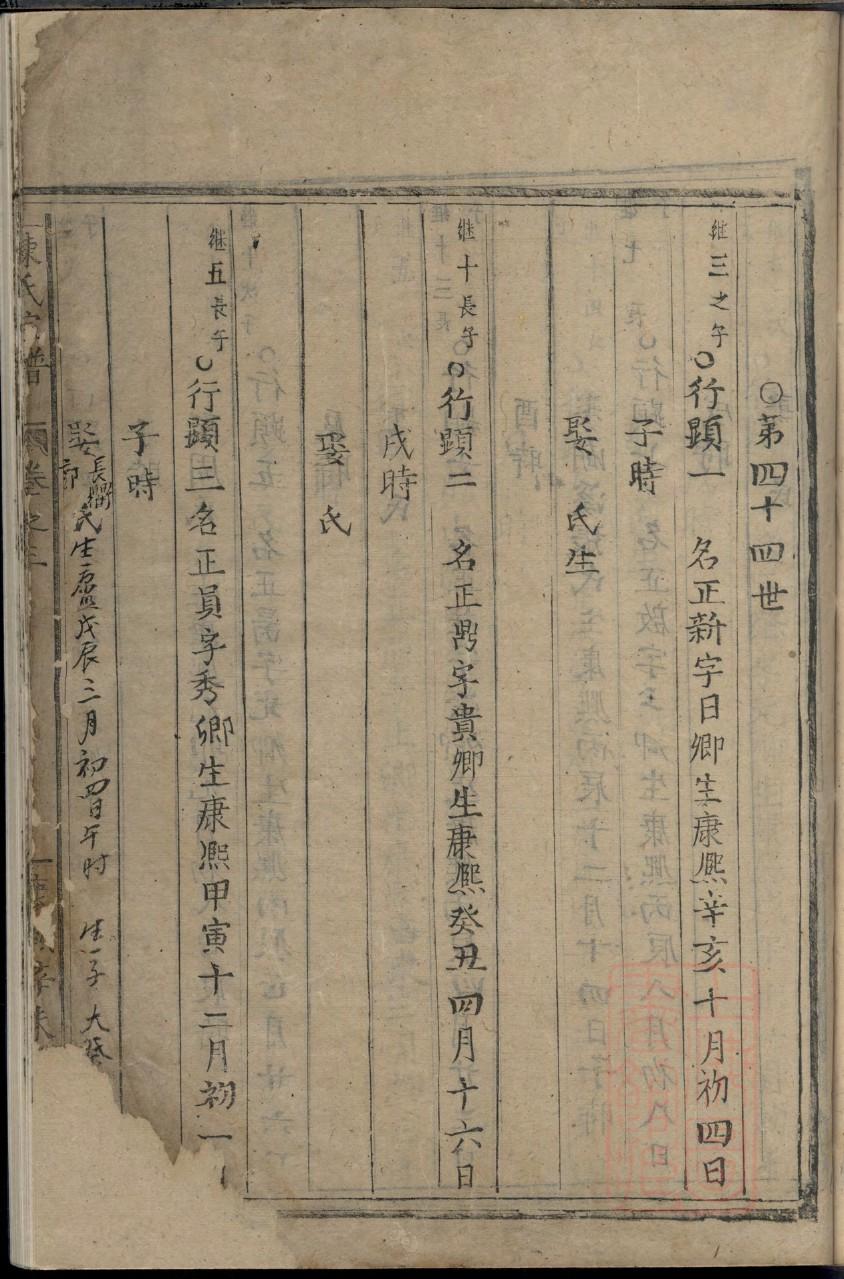 ○第四十四世
継三之子○行顕一 名正新字日卿生康熈辛亥十月初四日
子時
娶 氏生
継十長子○行顕二 名正鼎字貴卿生康熈癸丑四月十六日
戌時
娶 氏
継五長子○行顕三名正員字秀卿生康熈甲寅十二月初一
子時
娶 氏生 戊辰三月初四日午时 生子大
氏 譜 卷之三